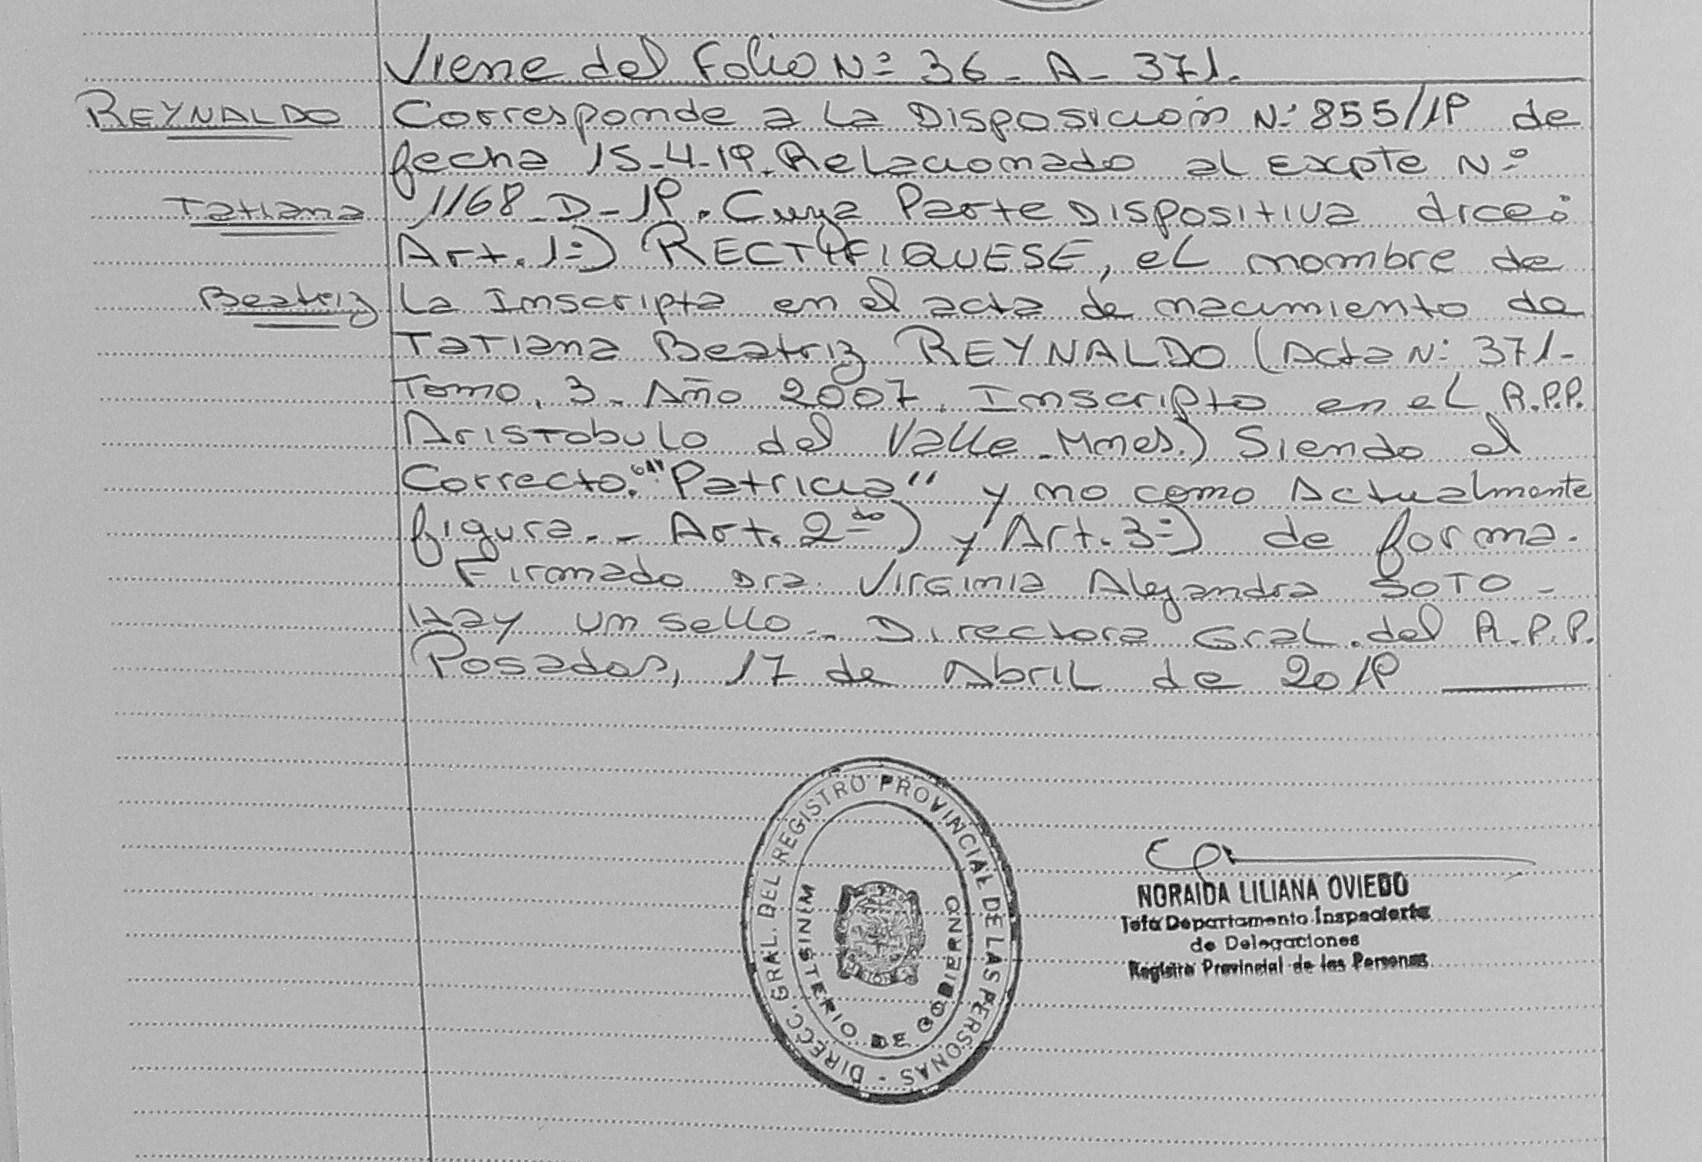 Viene del Folio Nº 36-A-371.
REYNALDO
Corresponde a La Disposición Nº 855/19 de
fecha 15-4-19. Relacionado al Expte Nº
Tatiana
1168-D-19. Cuya Parte Dispositiva dice:
Art. 1º) RECTIFIQUESE, el nombre de
Beatriz
La Inscripta en el acta de nacimiento de
Tatiana Beatriz REYNALDO (Acta Nº 371-
Tomo. 3- Año 2007. Inscripto en el R.P.P.
Aristobulo del Valle-Mnes.) Siendo el
Correcto: "Patricia" y no como Actualmente
figura.- Art. 2do) y Art. 3º) de forma.
Firmado Dra. Virginia Alejandra SOTO-
Hay un sello.- Directora Gral. del R.P.P.
Posadas, 17 de Abril de 2019
DIRECC. GRAL. DEL REGISTRO PROVINCIAL DE LAS PERSONAS -
MINISTERIO DE GOBIERNO
NORAIDA LILIANA OVIEDO
Jefa Departamento Inspectoría
de Delegaciones
Registro Provincial de las Personas